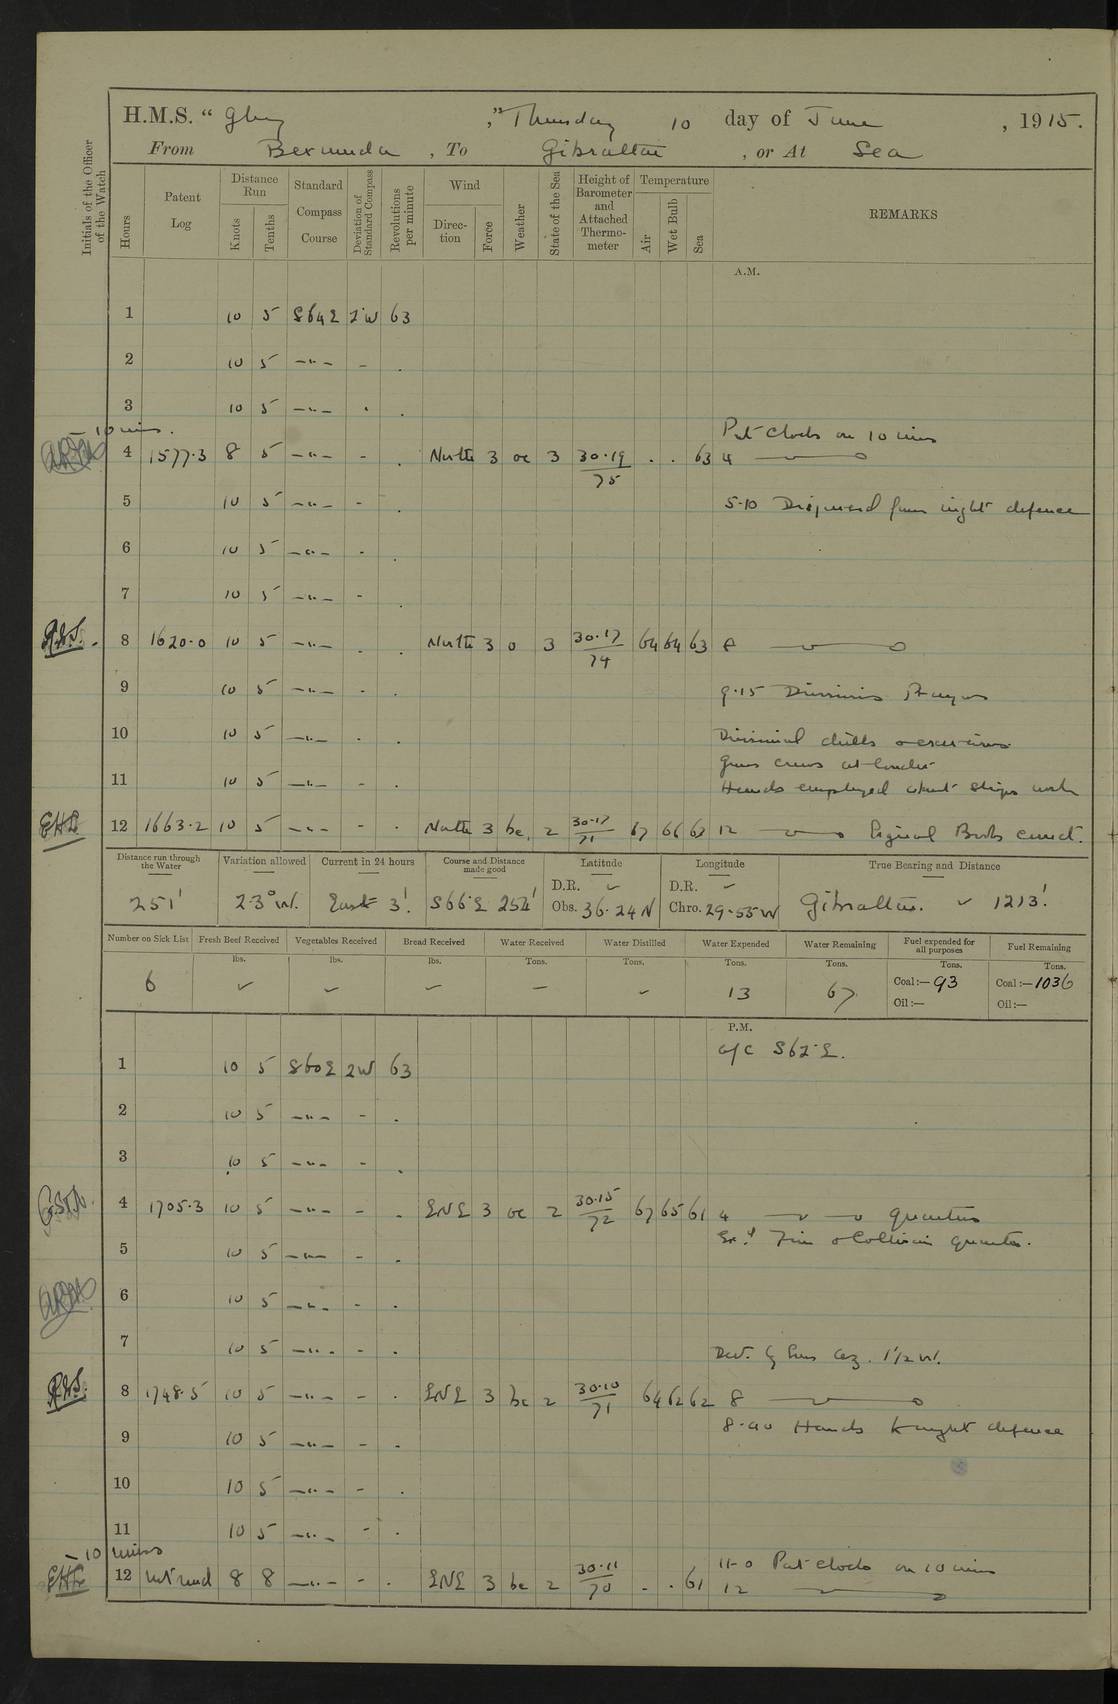 H.M.S. “ Glory ,” Thursday 10 day of June , 1915.
From Bermuda , To Gibraltar , or At Sea
Initials of the Officer of the Watch
Hours
Patent Log
Distance Run
Knots
Tenths
Standard Compass Course
Deviation of Standard Compass
Revolutions per minute
Wind
Direction
Force
Weather
State of the Sea
Height of Barometer and Attached Thermometer
Temperature
Air
Wet Bulb
Sea
REMARKS
A.M.
1 10 5 S64E 2W 63
2 10 5 —"— -
3 10 5 —"—
- 10 mins. Put clocks on 10 mins
4 1577.3 8 5 —"— - North 3 oc 3 30.19/75 . . 63 4
5 10 5 —"— - 5.10 Dispersed from night defence
6 10 5 —"— -
7 10 5 —"— -
8 1620.0 10 5 —"— . North 3 o 3 30.17/74 64 64 63 8
9 10 5 —"— - 9.15 Divisions Prayers
10 10 5 —"— - Divisional drills & exercises
Guns crews at loader
11 10 5 —"— - Hands employed about ships work
12 1663.2 10 5 —"— - North 3 bc. 2 30.17/71 67 66 63 12 Signal Books correct.
Distance run through the Water 251'
Variation allowed 23° W.
Current in 24 hours East 3'.
Course and Distance made good S66°E 254'
Latitude
D.R. ✓
Obs. 36.24 N
Longitude
D.R. ✓
Chro. 29.55 W
True Bearing and Distance
Gibraltar. ✓ 1213'.
Number on Sick List
Fresh Beef Received
Vegetables Received
Bread Received
Water Received
Water Distilled
Water Expended
Water Remaining
Fuel expended for all purposes
Fuel Remaining
lbs. lbs. lbs. Tons. Tons. Tons. Tons. Tons. Tons.
6 ✓ ✓ ✓ — ✓ 13 67 Coal :— 93 Coal :— 1036
Oil :— Oil :—
P.M.
a/c S62°E.
1 10 5 S60E 2W 63
2 10 5 —"— -
3 10 5 —"— -
4 1705.3 10 5 —"— - ENE 3 oc 2 30.15/72 67 65 61 4 Quarters
Exd Fire & Collision quarters.
5 10 5 —"— -
6 10 5 —"— -
7 10 5 —"— - Dev. by Sun az. 1½ W.
8 1748.5 10 5 —"— - ENE 3 bc 2 30.10/71 64 62 62 8
8.40 Hands to night defence
9 10 5 —"— -
10 10 5 —"— -
11 10 5 —"— -
- 10 mins 11-0 Put clocks on 10 mins
12 not read 8 8 —"— - ENE 3 bc 2 30.11/70 - . 61 12